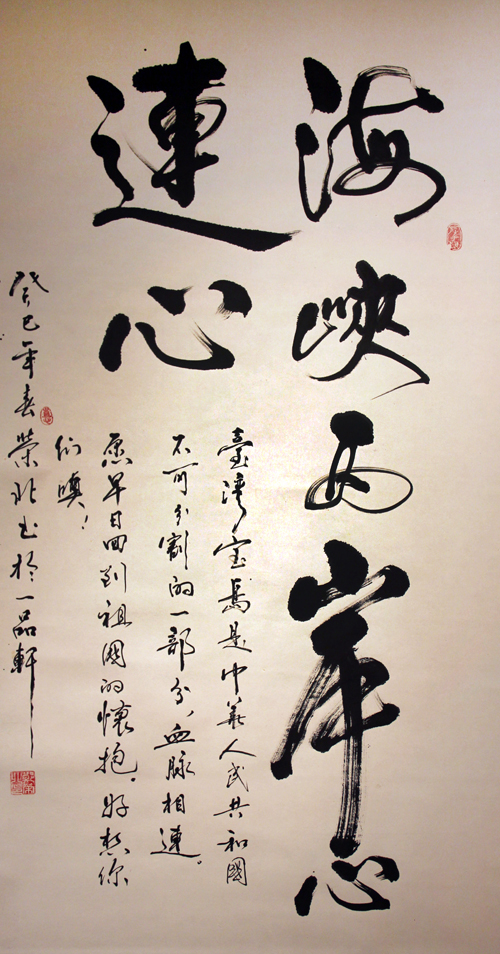 海峽两岸心
連心
臺湾宝島是中華人民共和國
不可分割的一部分，血脉相連。
愿早日回到祖國的懷抱。好想你
们噢！
癸巳年春荣北书於一品軒